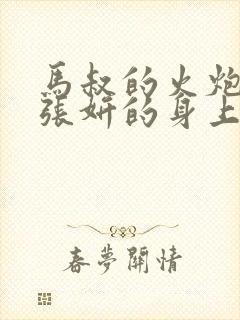 馬叔的火炮
張妍的身上
春夢關情